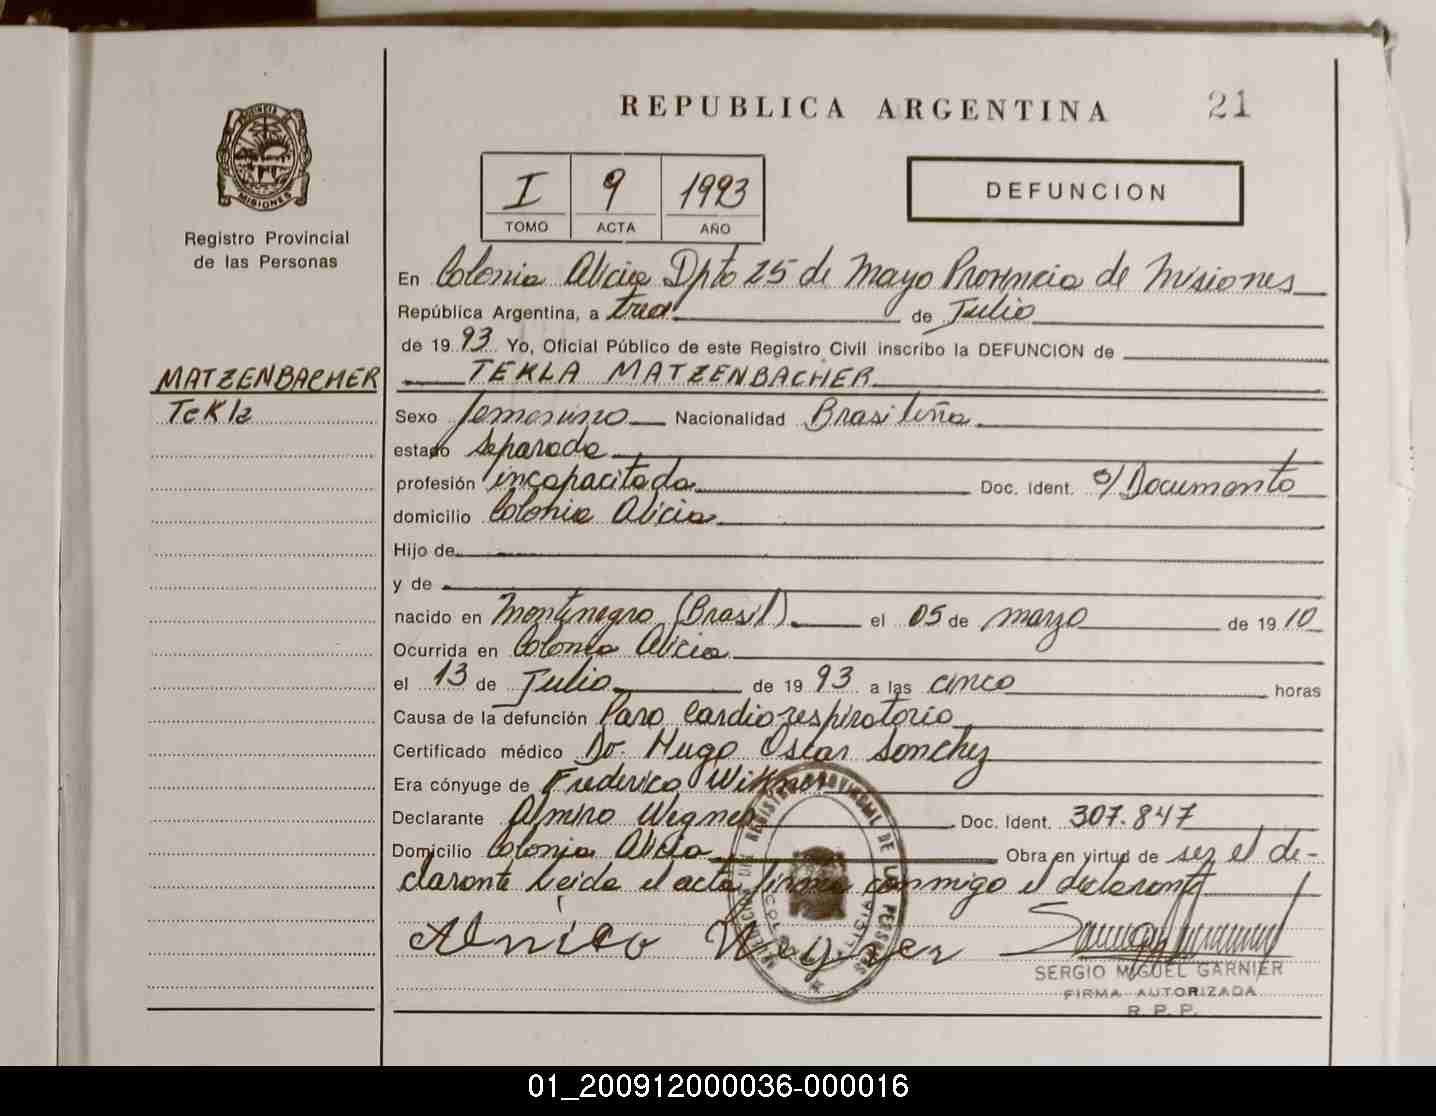 REPUBLICA ARGENTINA 21
PROVINCIA DE
MISIONES
Registro Provincial
de las Personas
I 9 1993
TOMO ACTA AÑO
DEFUNCION
En Colonia Alicia Dpto 25 de Mayo Provincia de Misiones
República Argentina, a trea de Julio
de 19 93 Yo, Oficial Público de este Registro Civil inscribo la DEFUNCION de
MATZENBACHER
TEKLA MATZENBACHER
Tekla
Sexo femenino Nacionalidad Brasileña
estado Separada
profesión incapacitada Doc. Ident. s/Documento
domicilio Colonia Alicia
Hijo de
y de
nacido en Montenegro (Brasil) el 05 de marzo de 19 10
Ocurrida en Colonia Alicia
el 13 de Julio de 19 93 a las cinco horas
Causa de la defunción Paro Cardiorespiratorio
Certificado médico Dr. Hugo Oscar Sanchez
Era cónyuge de Frederico
Declarante Almiro Wegner Doc. Ident. 307.847
Domicilio Colonia Alicia Obra en virtud de ser el de-
clarante Leida el acta firma conmigo el declarante
Almiro Wegner
REGISTRO PROVINCIAL DE LAS PERSONAS
SERGIO MIGUEL GARNIER
FIRMA AUTORIZADA
R. P. P.
01_200912000036-000016